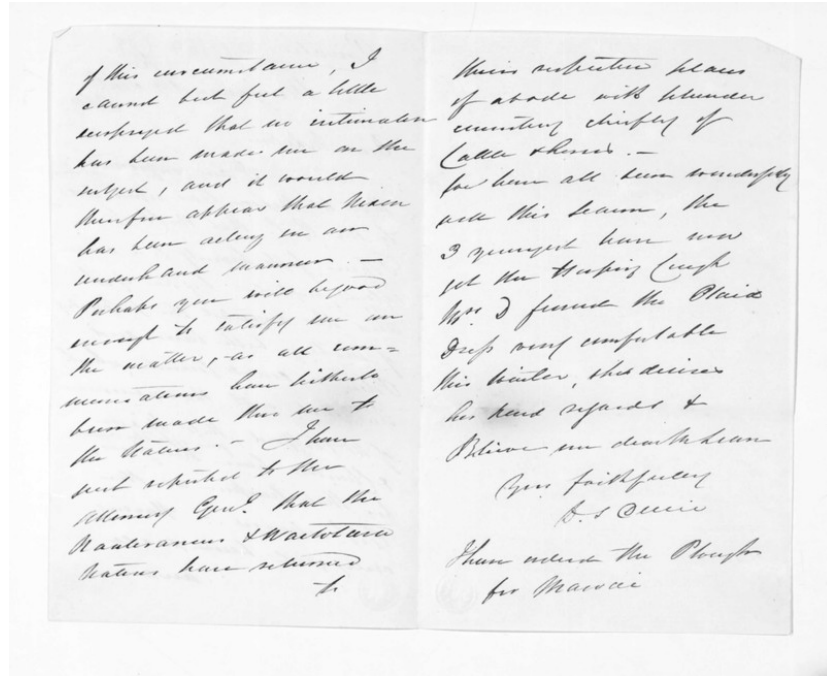 of this circumstance, I
cannot but feel a little
surprised that no intimation
has been made me on the
subject, and it would
therefore appear that Nixon
has been acting in an
underhand manner. —
Perhaps you will be good
enough to satisfy me on
the matter, – as all com=
munications have hitherto
been made thro me to
the Natives. – I have
just reported to the
Attorney Genl. that the
& Waitotara
Natives have returned
to
their respective places
of abode with plunder
consisting chiefly of
Cattle & horses. –
We have all been wonderfully
well this season, the
3 youngest have now
got the Hooping Cough
Mrs. D found the Plaid
Dress very comfortable
this winter, she desires
her kind regards &
Believe me dear McLean
Yrs. faithfully
D. S Durie
I have ordered the Plough
for Mawae